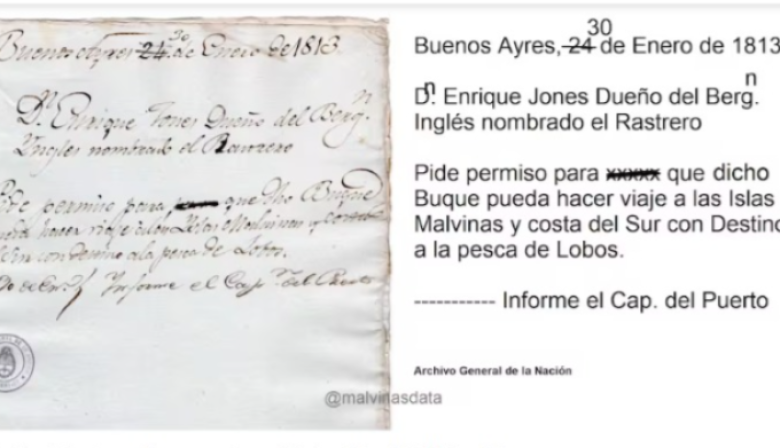 Buenos Ayres 24 30 de Enero de 1813
Dn. Enrique Jones Dueño del Bergn.
Yngles nombrado el Rastrero
Pide permiso para que dho Buque
pueda hacer viaje a las Yslas Malvinas y costa
del Sur con destino a la pesca de Lobos.
Informe el Capn. del Puerto
30
Buenos Ayres, 24 de Enero de 1813
n
Dn. Enrique Jones Dueño del Berg.
Inglés nombrado el Rastrero
Pide permiso para xxxxx que dicho
Buque pueda hacer viaje a las Islas
Malvinas y costa del Sur con Destino
a la pesca de Lobos.
----------- Informe el Cap. del Puerto
Archivo General de la Nación
@malvinasdata